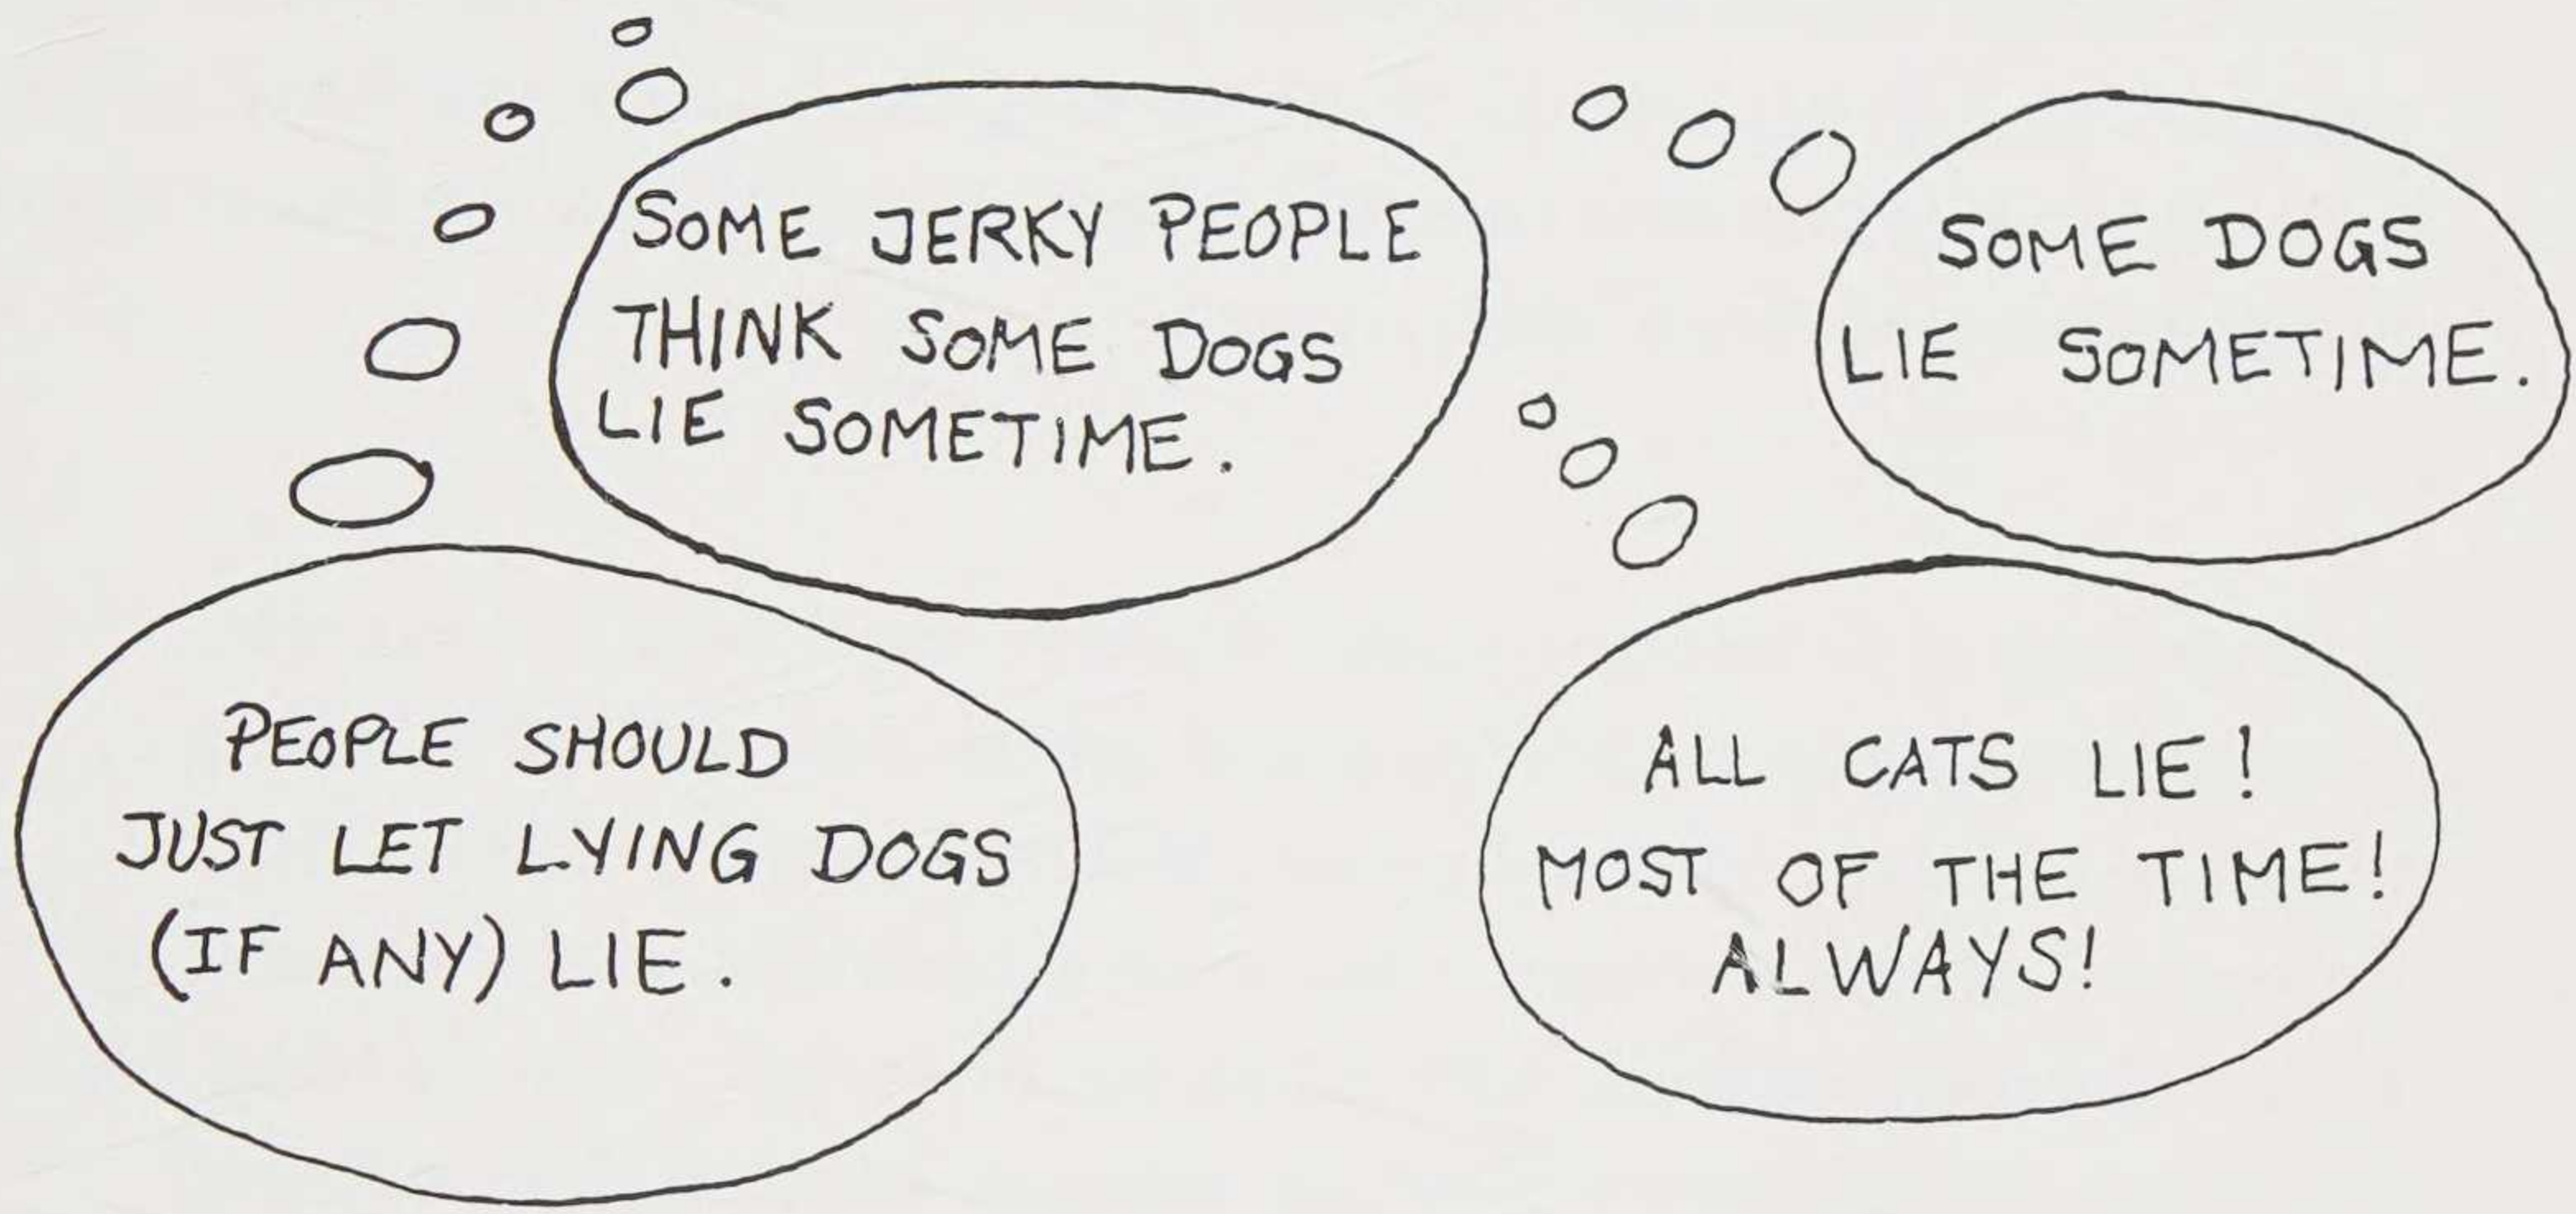 SOME JERKY PEOPLE
THINK SOME DOGS
LIE SOMETIME.
SOME DOGS
LIE SOMETIME.
PEOPLE SHOULD
JUST LET LYING DOGS
(IF ANY) LIE.
ALL CATS LIE!
MOST OF THE TIME!
ALWAYS!